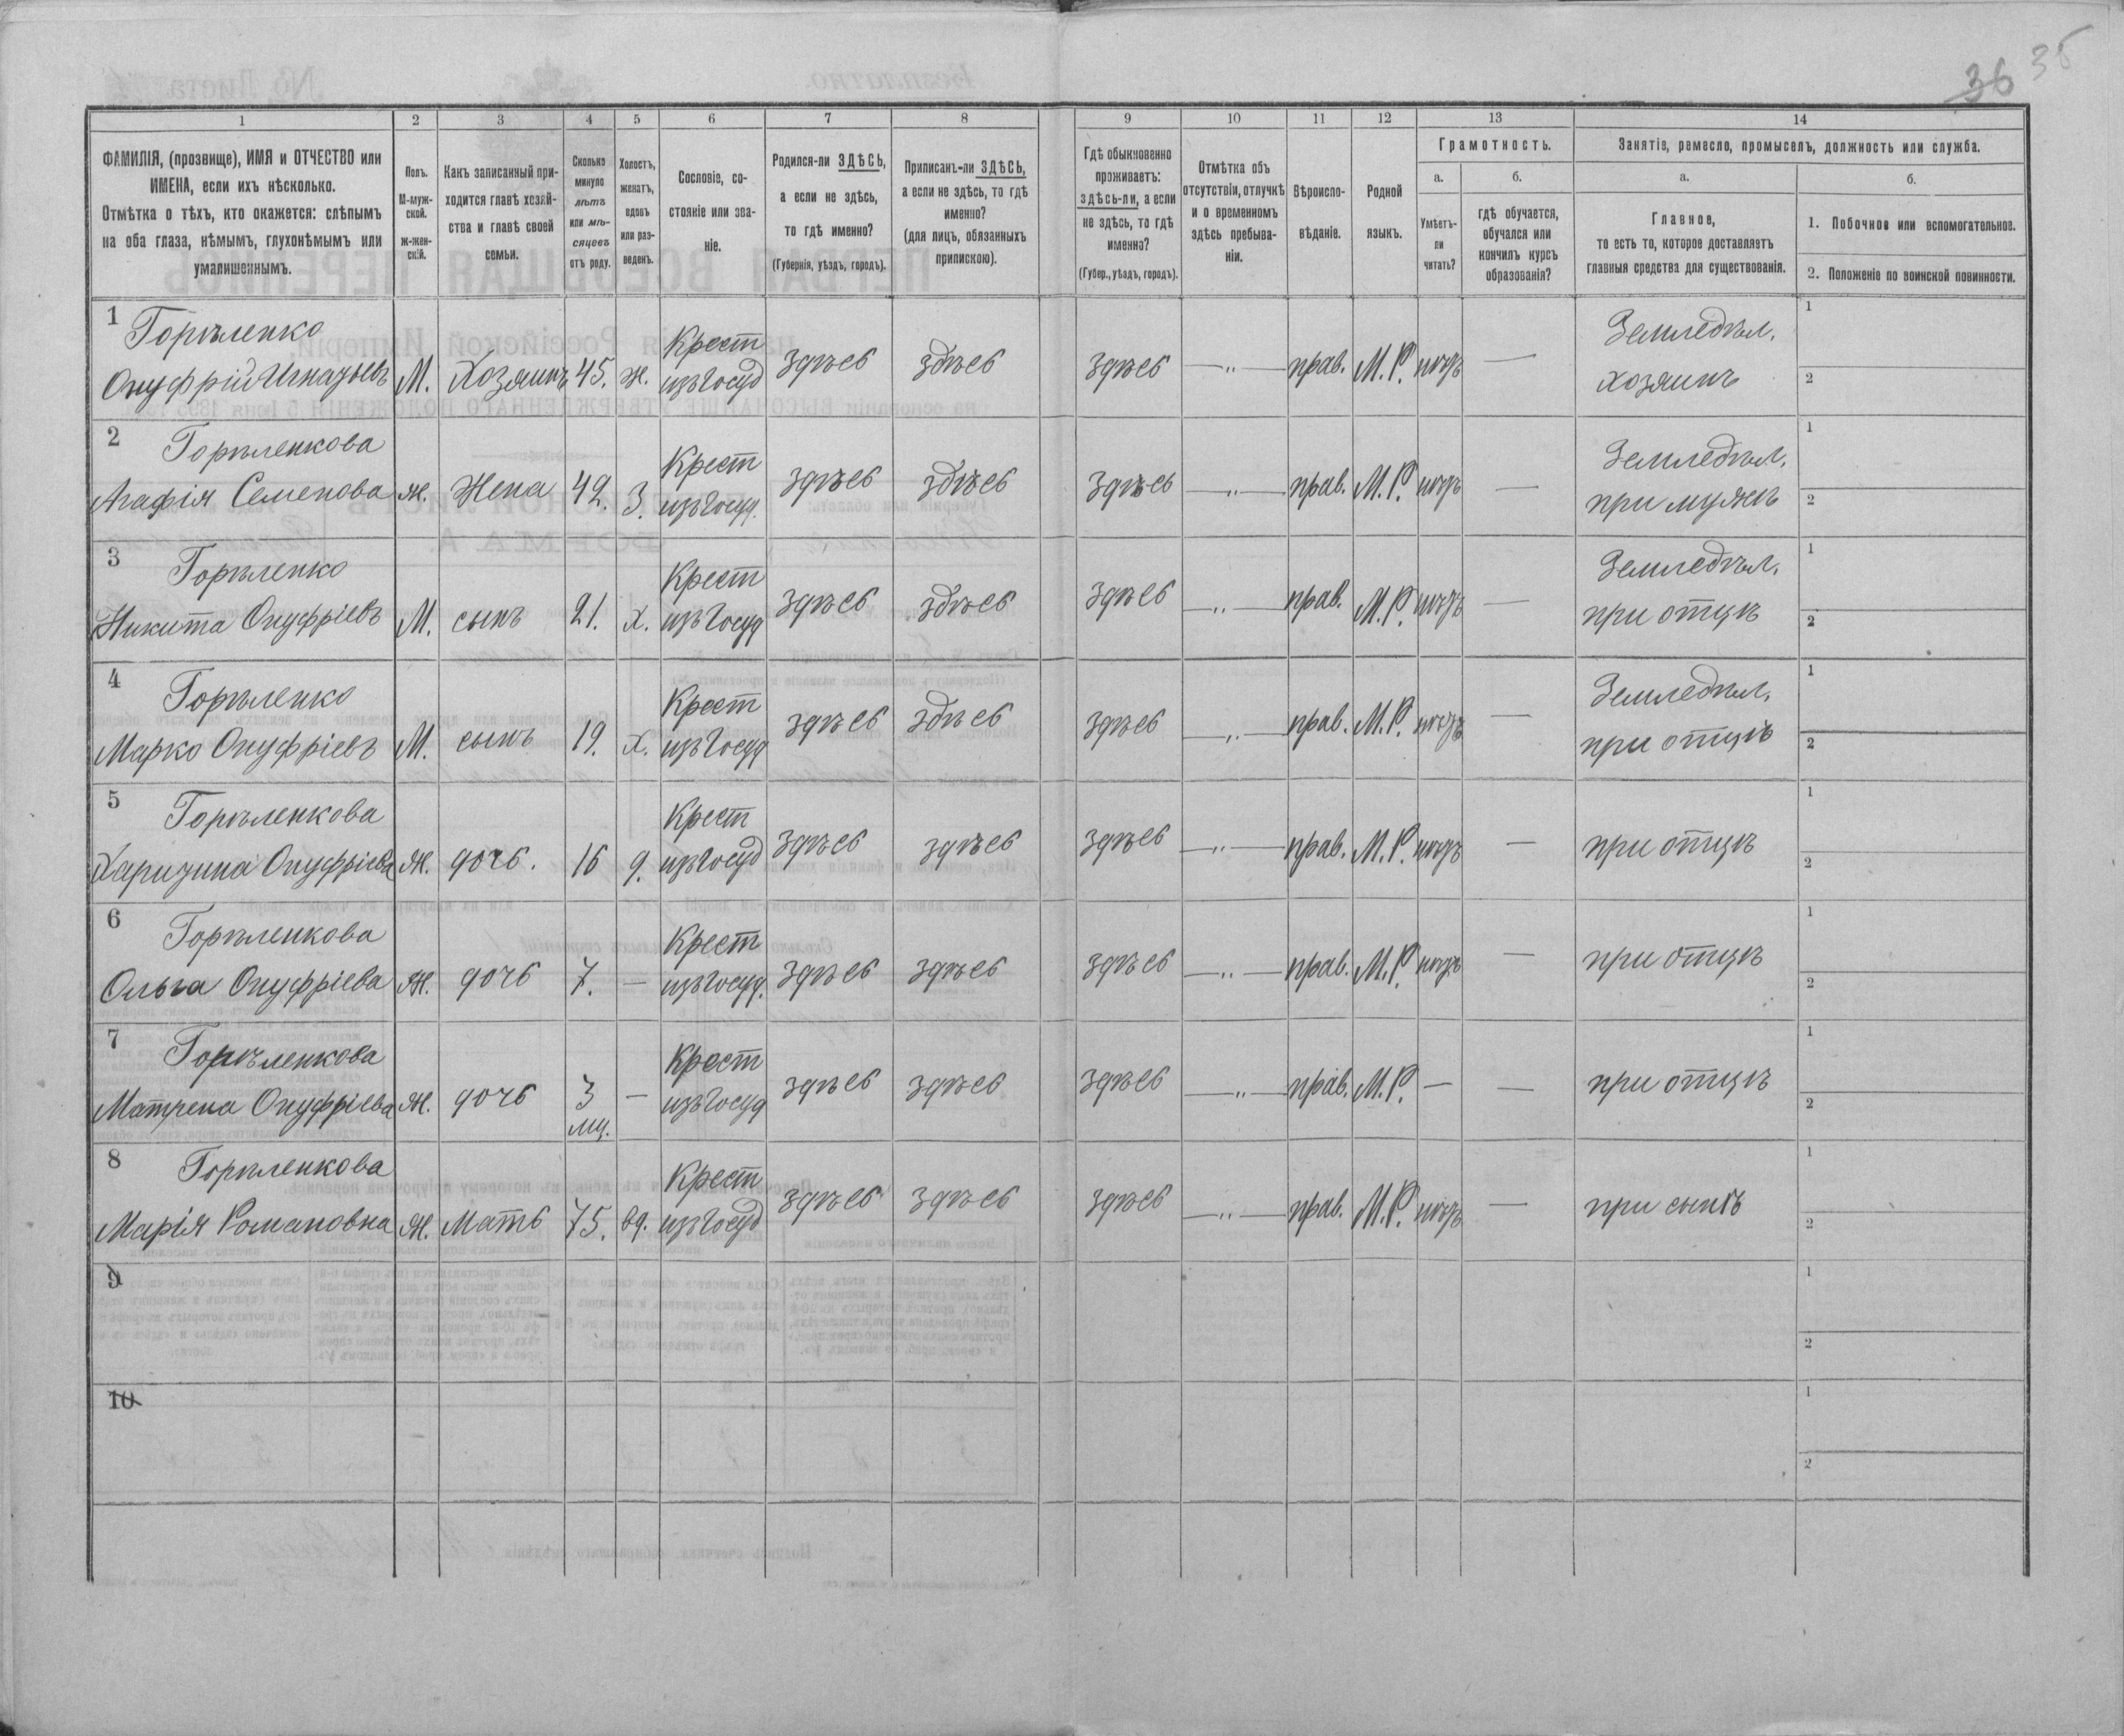 36 35
1 2 3 4 5 6 7 8 9 10 11 12 13 14
ФАМИЛІЯ, (прозвище), ИМЯ и ОТЧЕСТВО или
ИМЕНА, если ихъ нѣсколько.
Отмѣтка о тѣхъ, кто окажется: слѣпымъ
на оба глаза, нѣмымъ, глухонѣмымъ или
умалишеннымъ.
Полъ.
М-муж-
ской.
ж-жен-
скій.
Какъ записанный при-
ходится главѣ хозяй-
ства и главѣ своей
семьи.
Сколько
минуло
лѣтъ
или мѣ-
сяцевъ
отъ роду.
Холостъ,
женатъ,
вдовъ
или раз-
веденъ.
Сословіе, со-
стояніе или зва-
ніе.
Родился-ли ЗДѢСЬ,
а если не здѣсь,
то гдѣ именно?
(Губернія, уѣздъ, городъ).
Приписанъ-ли ЗДѢСЬ,
а если не здѣсь, то гдѣ
именно?
(для лицъ, обязанныхъ
припискою).
Гдѣ обыкновенно
проживаетъ:
здѣсь-ли, а если
не здѣсь, то гдѣ
именно?
(Губер., уѣздъ, городъ).
Отмѣтка объ
отсутствіи, отлучкѣ
и о временномъ
здѣсь пребыва-
ніи.
Вѣроиспо-
вѣданіе.
Родной
языкъ.
Грамотность.
а.
Умѣетъ-
ли
читать?
б.
гдѣ обучается,
обучался или
кончилъ курсъ
образованія?
Занятіе, ремесло, промыселъ, должность или служба.
а.
Главное,
то есть то, которое доставляетъ
главныя средства для существованія.
б.
1. Побочное или вспомогательное.
2. Положеніе по воинской повинности.
1 Горѣленко Крест Земледѣл. 1
Онуфрій Игнатьевъ М. Хозяинъ 45. ж. изъ Госуд здѣсь здѣсь здѣсь —„— прав. М.Р. — хозяинъ 2
2 Горѣленкова Крест Земледѣл. 1
Агафія Семенова ж. Жена 42. З. изъ Госуд. здѣсь здѣсь здѣсь —„— прав. М.Р. — при мужѣ 2
3 Горѣленко Крест Земледѣл. 1
Никита Онуфріевъ М. сынъ 21. х. изъ Госуд здѣсь здѣсь здѣсь —„— прав. М.Р. — при отцѣ 2
4 Горѣленко Крест Земледѣл. 1
Марко Онуфріевъ М. сынъ 19. х. изъ Госуд здѣсь здѣсь здѣсь —„— прав. М.Р. — при отцѣ 2
5 Горѣленкова Крест 1
Харитина Онуфріева ж. дочь. 16 д. изъ Госуд здѣсь здѣсь здѣсь —„— прав. М.Р. — при отцѣ 2
6 Горѣленкова Крест 1
Ольга Онуфріева ж. дочь 7. — изъ Госуд. здѣсь здѣсь здѣсь —„— прав. М.Р. — при отцѣ 2
7 Горѣленкова Крест 1
Матрена Онуфріева ж. дочь 3 мц. — изъ Госуд здѣсь здѣсь здѣсь —„— прав. М.Р. — — при отцѣ 2
8 Горѣленкова Крест 1
Марія Романовна ж. Мать 75. вд. изъ Госуд здѣсь здѣсь здѣсь —„— прав. М.Р. — при сынѣ 2
9 1
2
10 1
2